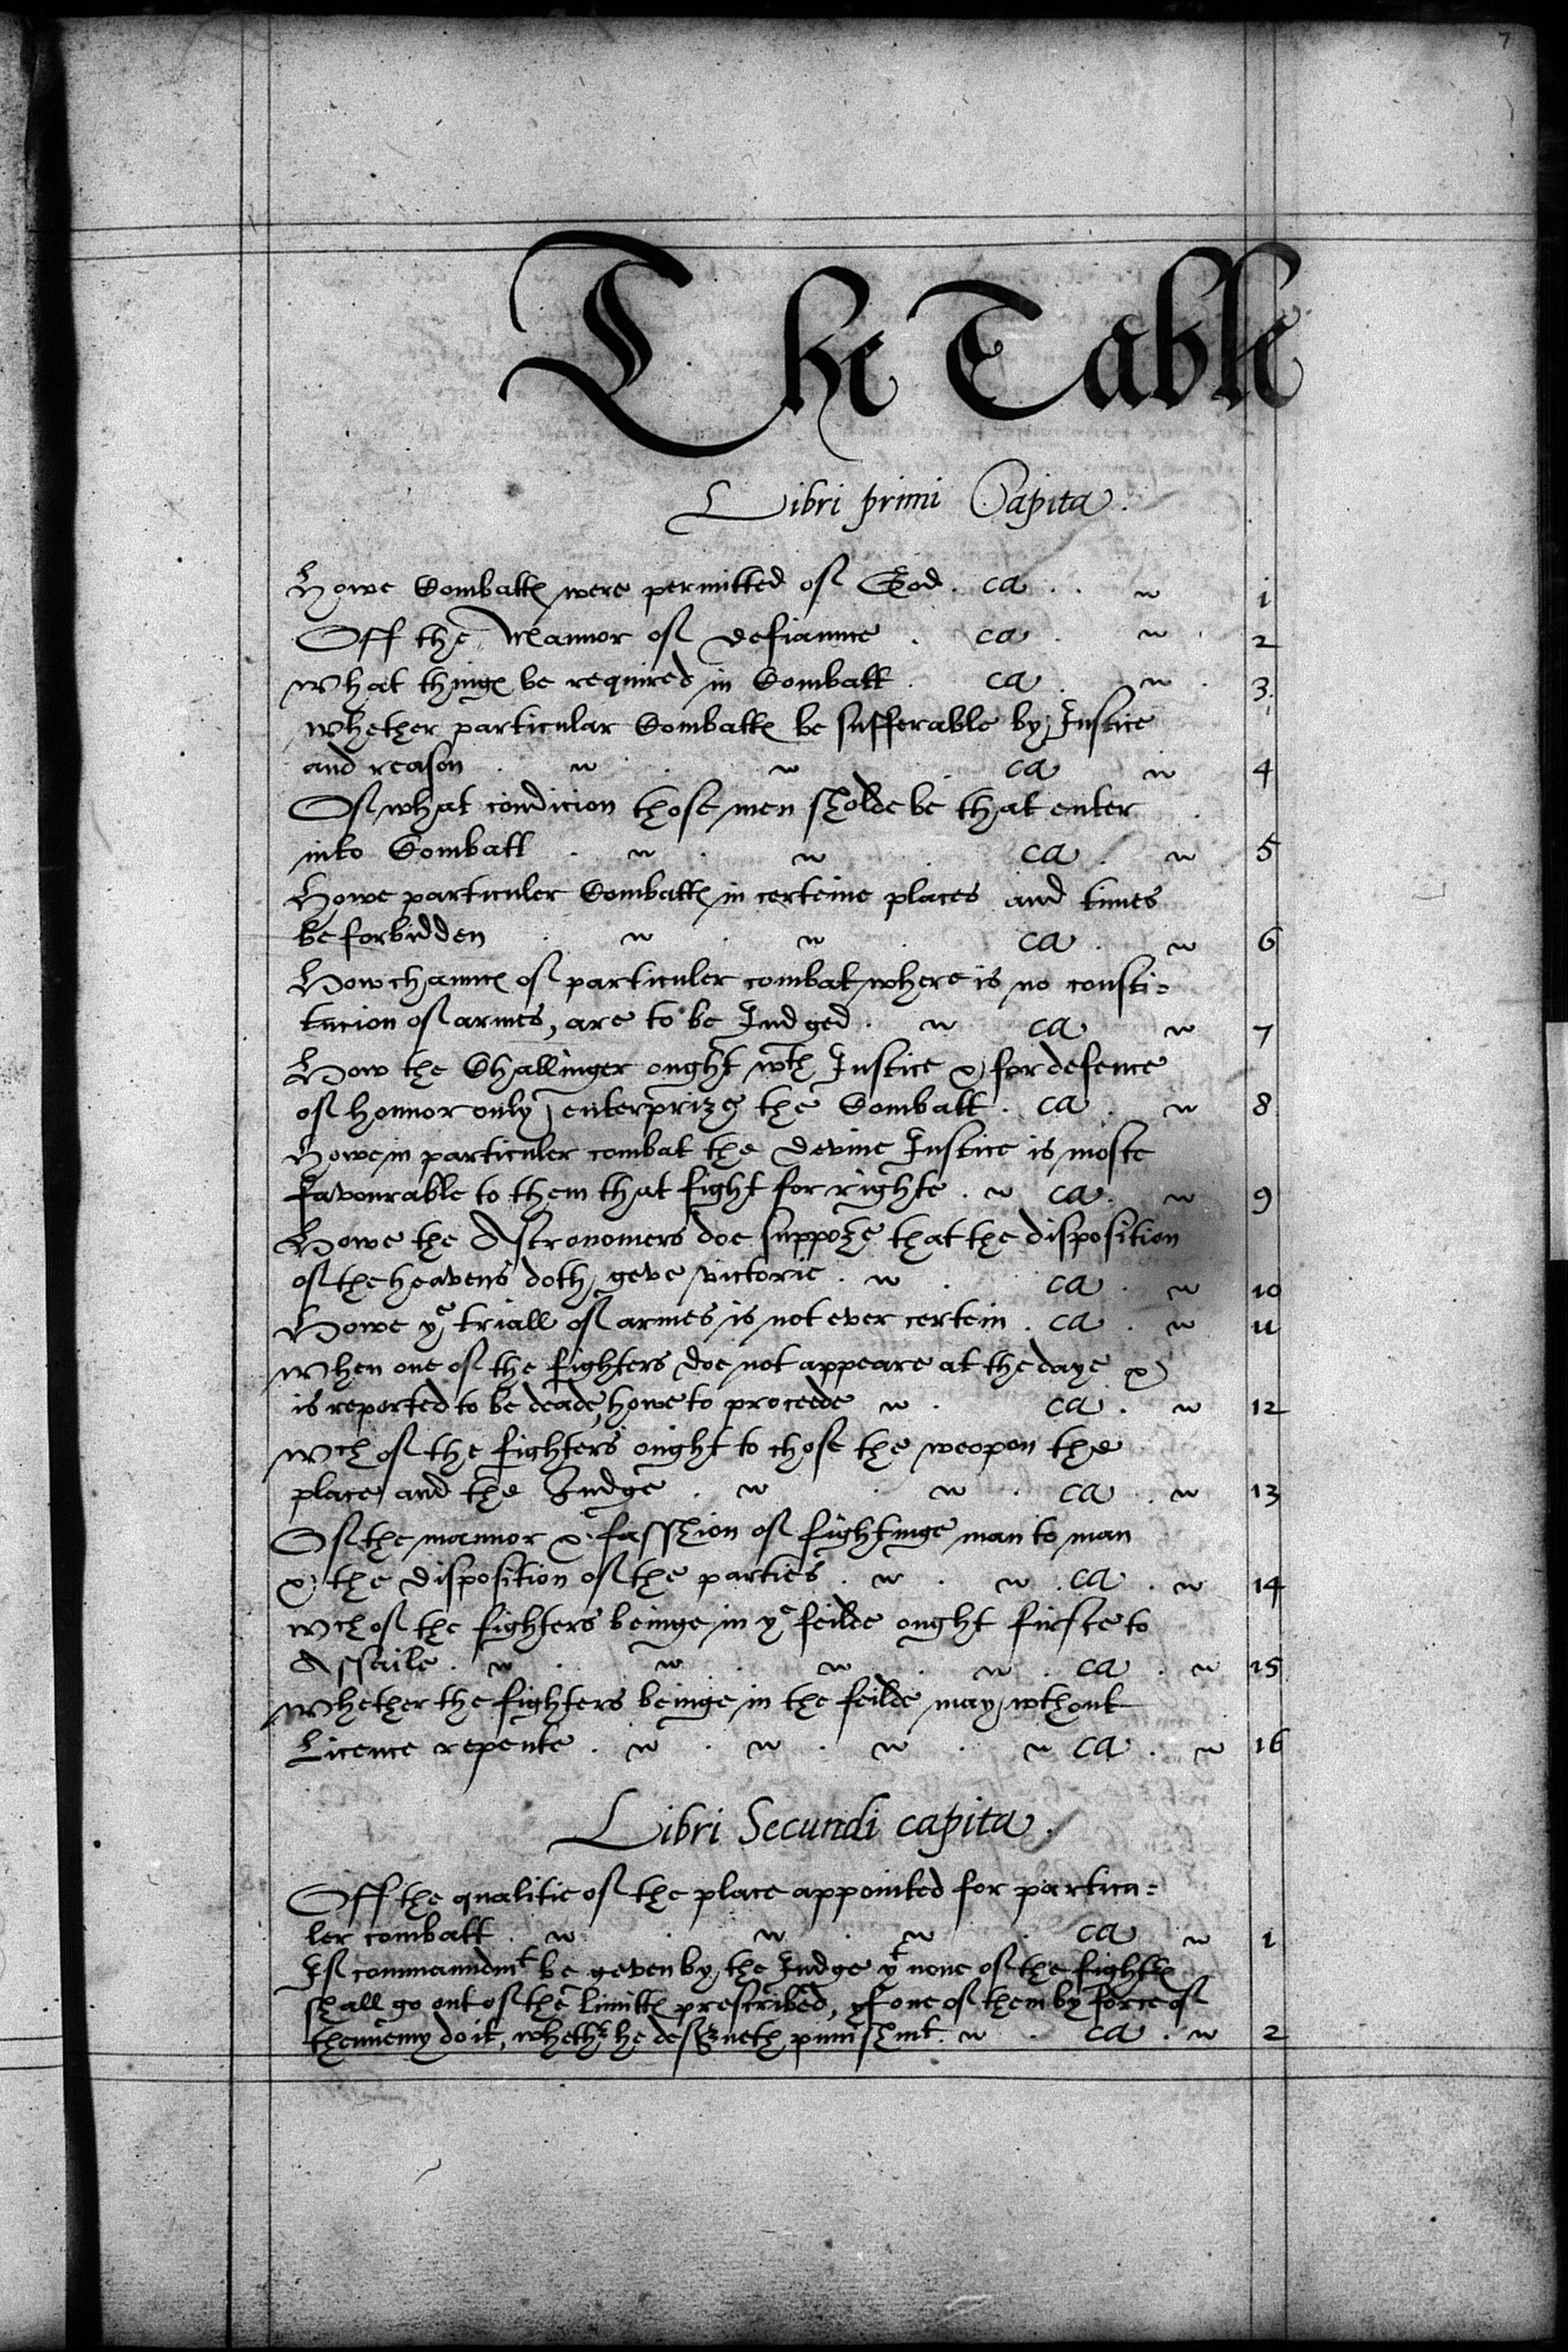 7
The Table
Libri primi Capita.
Howe Combattes were permitted of God. ca. 1
Off the Mannor of defiaunce. ca. 2
What thinges be required in Combatt. ca. 3
Whether particular Combattes be sufferable by Justice
and reason ca 4
Of what condicion those men sholde be that enter
into Combatt ca. 5
Howe particuler Combattes in certeine places and times
be forbidden ca. 6
How chaunces of particuler combat where is no consti-
tucion of armes, are to be Judged. ca 7
How the Challinger ought wth Justice & for defence
of honnor only enterprize the Combatt. ca. 8
Howe in particuler combat the devine Justice is moste
favourable to them that fight for righte. ca. 9
Howe the Astronomers doe suppoze that the disposition
of the heavens doth geve victorie. ca. 10
Howe ye triall of armes is not ever certein. ca. 11
When one of the fighters doe not appeare at the daye &
is reported to be deade, howe to proceede. ca. 12
Wch of the fighters ought to chose the weopon the
place and the Judge. ca. 13
Of the mannor & fasshion of fightinge man to man
& the disposition of the parties. ca. 14
Wch of the fighters beinge in ye feilde ought firste to
Assaile. ca. 15
Whether the fighters beinge in the feilde may wthout
Licence repente. ca. 16
Libri Secundi capita.
Off the qualitie of the place appointed for particu-
ler combatt. ca. 1
If commaundmt be geven by the Judge yt none of the fighters
shall go out of the limittes prescribed, yf one of them by force of
thennemy do it, whethr he deserveth punishmt. ca. 2